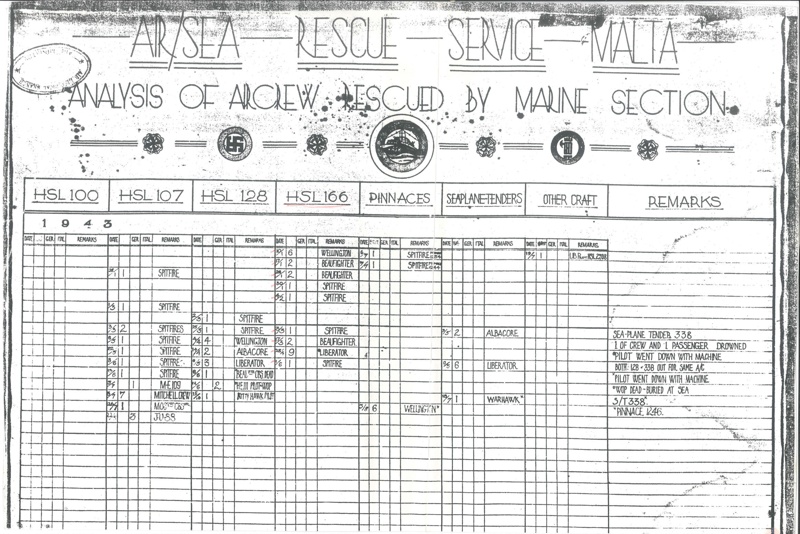 AIR/SEA RESCUE SERVICE MALTA
ANALYSIS OF AIRCREW RESCUED BY MARINE SECTION.
HSL 100 HSL 107 HSL 128 HSL 166 PINNACES SEAPLANE-TENDERS OTHER CRAFT REMARKS
1943
DATE GER ITAL REMARKS DATE GER ITAL REMARKS DATE GER ITAL REMARKS DATE GER ITAL REMARKS DATE GER ITAL REMARKS DATE GER ITAL REMARKS DATE GER ITAL REMARKS
6 WELLINGTON 1 SPITFIRE 1
2 BEAUFIGHTER 1 SPITFIRE
1 SPITFIRE 2 BEAUFIGHTER
1 SPITFIRE
1 SPITFIRE
1 SPITFIRE
1 SPITFIRE
2 SPITFIRES 1 SPITFIRE 1 SPITFIRE 2 ALBACORE SEA-PLANE TENDER 338
1 SPITFIRE 4 "WELLINGTON 2 BEAUFIGHTER 1 OF CREW AND 1 PASSENGER DROWNED
1 SPITFIRE 2 ALBACORE 9 "LIBERATOR "PILOT WENT DOWN WITH MACHINE
1 SPITFIRE 3 LIBERATOR 1 SPITFIRE 6 LIBERATOR BOTH 128 + 338 OUT FOR SAME A/C
1 SPITFIRE 1 "PILOT WENT DOWN WITH MACHINE
1 M-E 109 2 "WOP DEAD-BURIED AT SEA
7 MITCHELL CREW 1 KITTY HAWK PILOT 1 WARHAWK" S/T 338"
1 6 WELLINGTON" "PINNACE 1246.
3 JU-88